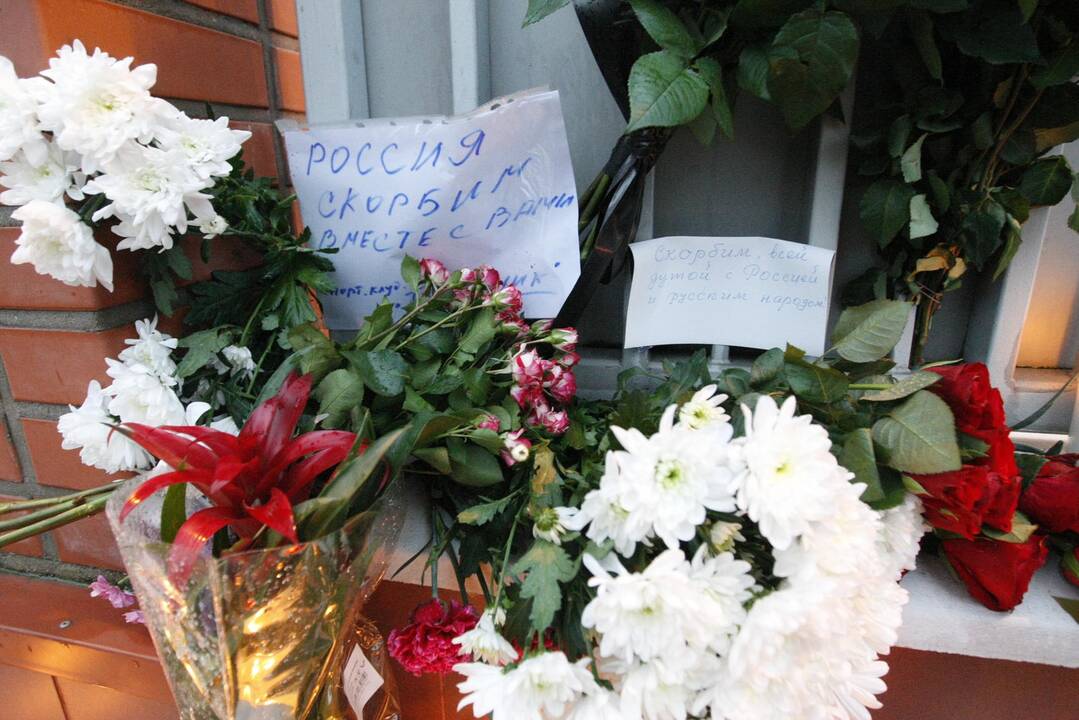 РОССИЯ
СКОРБИМ
ВМЕСТЕ С ВАМИ
Скорбим, всей
душой с Россией
и русским народом